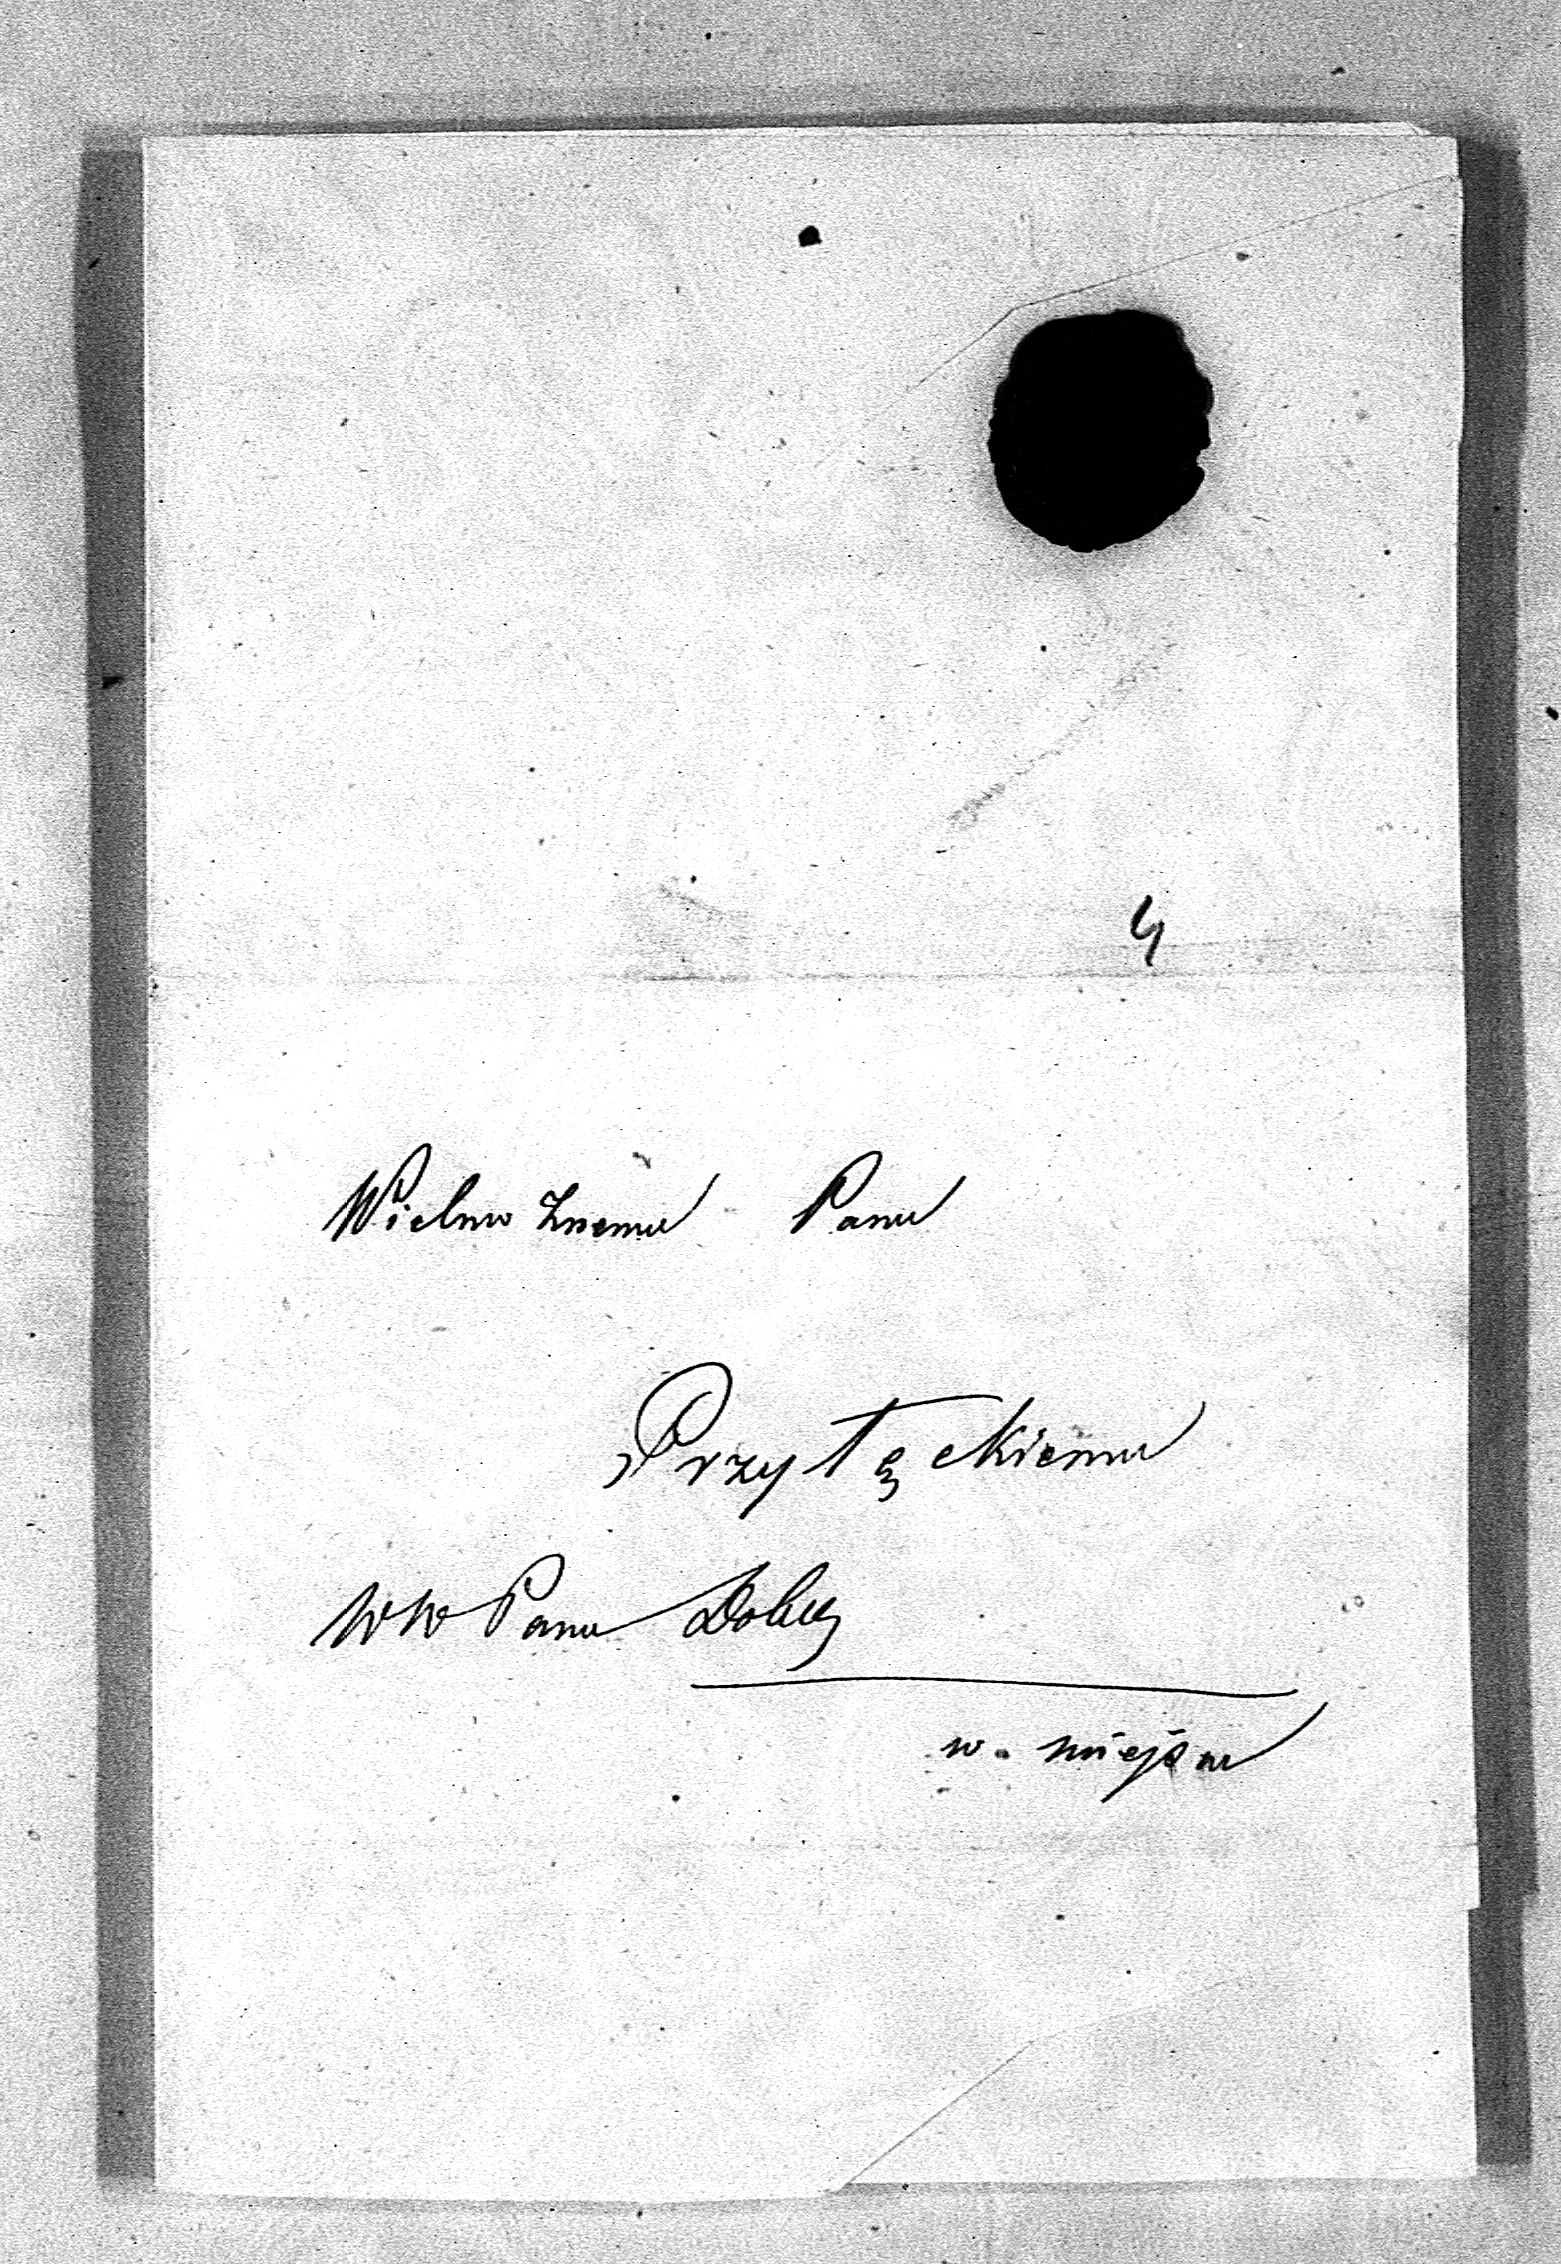 4
Wielmożnemu Panu
Przyłęckiemu
WW Panu Dobrz
w. miejscu